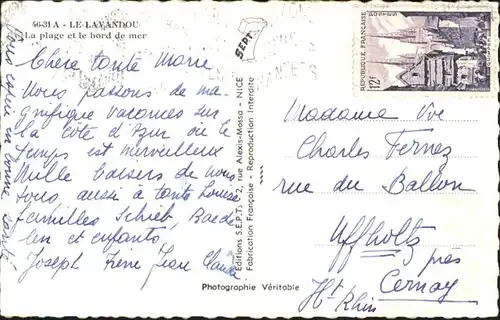 46-31 A - LE LAVANDOU
La plage et le bord de mer
Chère tante Marie
Nous passons de ma-
gnifique vacances sur
la Côte d'Azur où le
temps est merveilleux
Mille baisers de nous
tous aussi à tante Louise
familles Schieb, Baede
len et enfants.
Joseph Irène Jean Claude
Editions S.E.P.T. - 2, rue Alexis-Mossa - NICE
Fabrication Française - Reproduction Interdite
SEPT
Photographie Véritable
POSTES
REPUBLIQUE FRANÇAISE
12F
Madame Vve
Charles Fernez
rue du Ballon
Uffholtz
près
Cernay
Ht Rhin